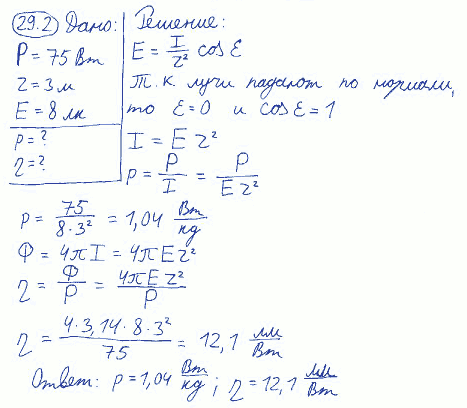 29.2 Дано:
P = 75 Вт
r = 3 м
E = 8 лк
p = ?
η = ?
Решение:
E = I/r² cos ε
Т. к. лучи падают по нормали,
то ε = 0 и cos ε = 1
I = E r²
p = P/I = P/(E r²)
p = 75/(8·3²) = 1,04 Вт/кд
Φ = 4πI = 4πE r²
η = Φ/P = 4πE r²/P
η = 4·3,14·8·3²/75 = 12,1 лм/Вт
Ответ: p = 1,04 Вт/кд ; η = 12,1 лм/Вт